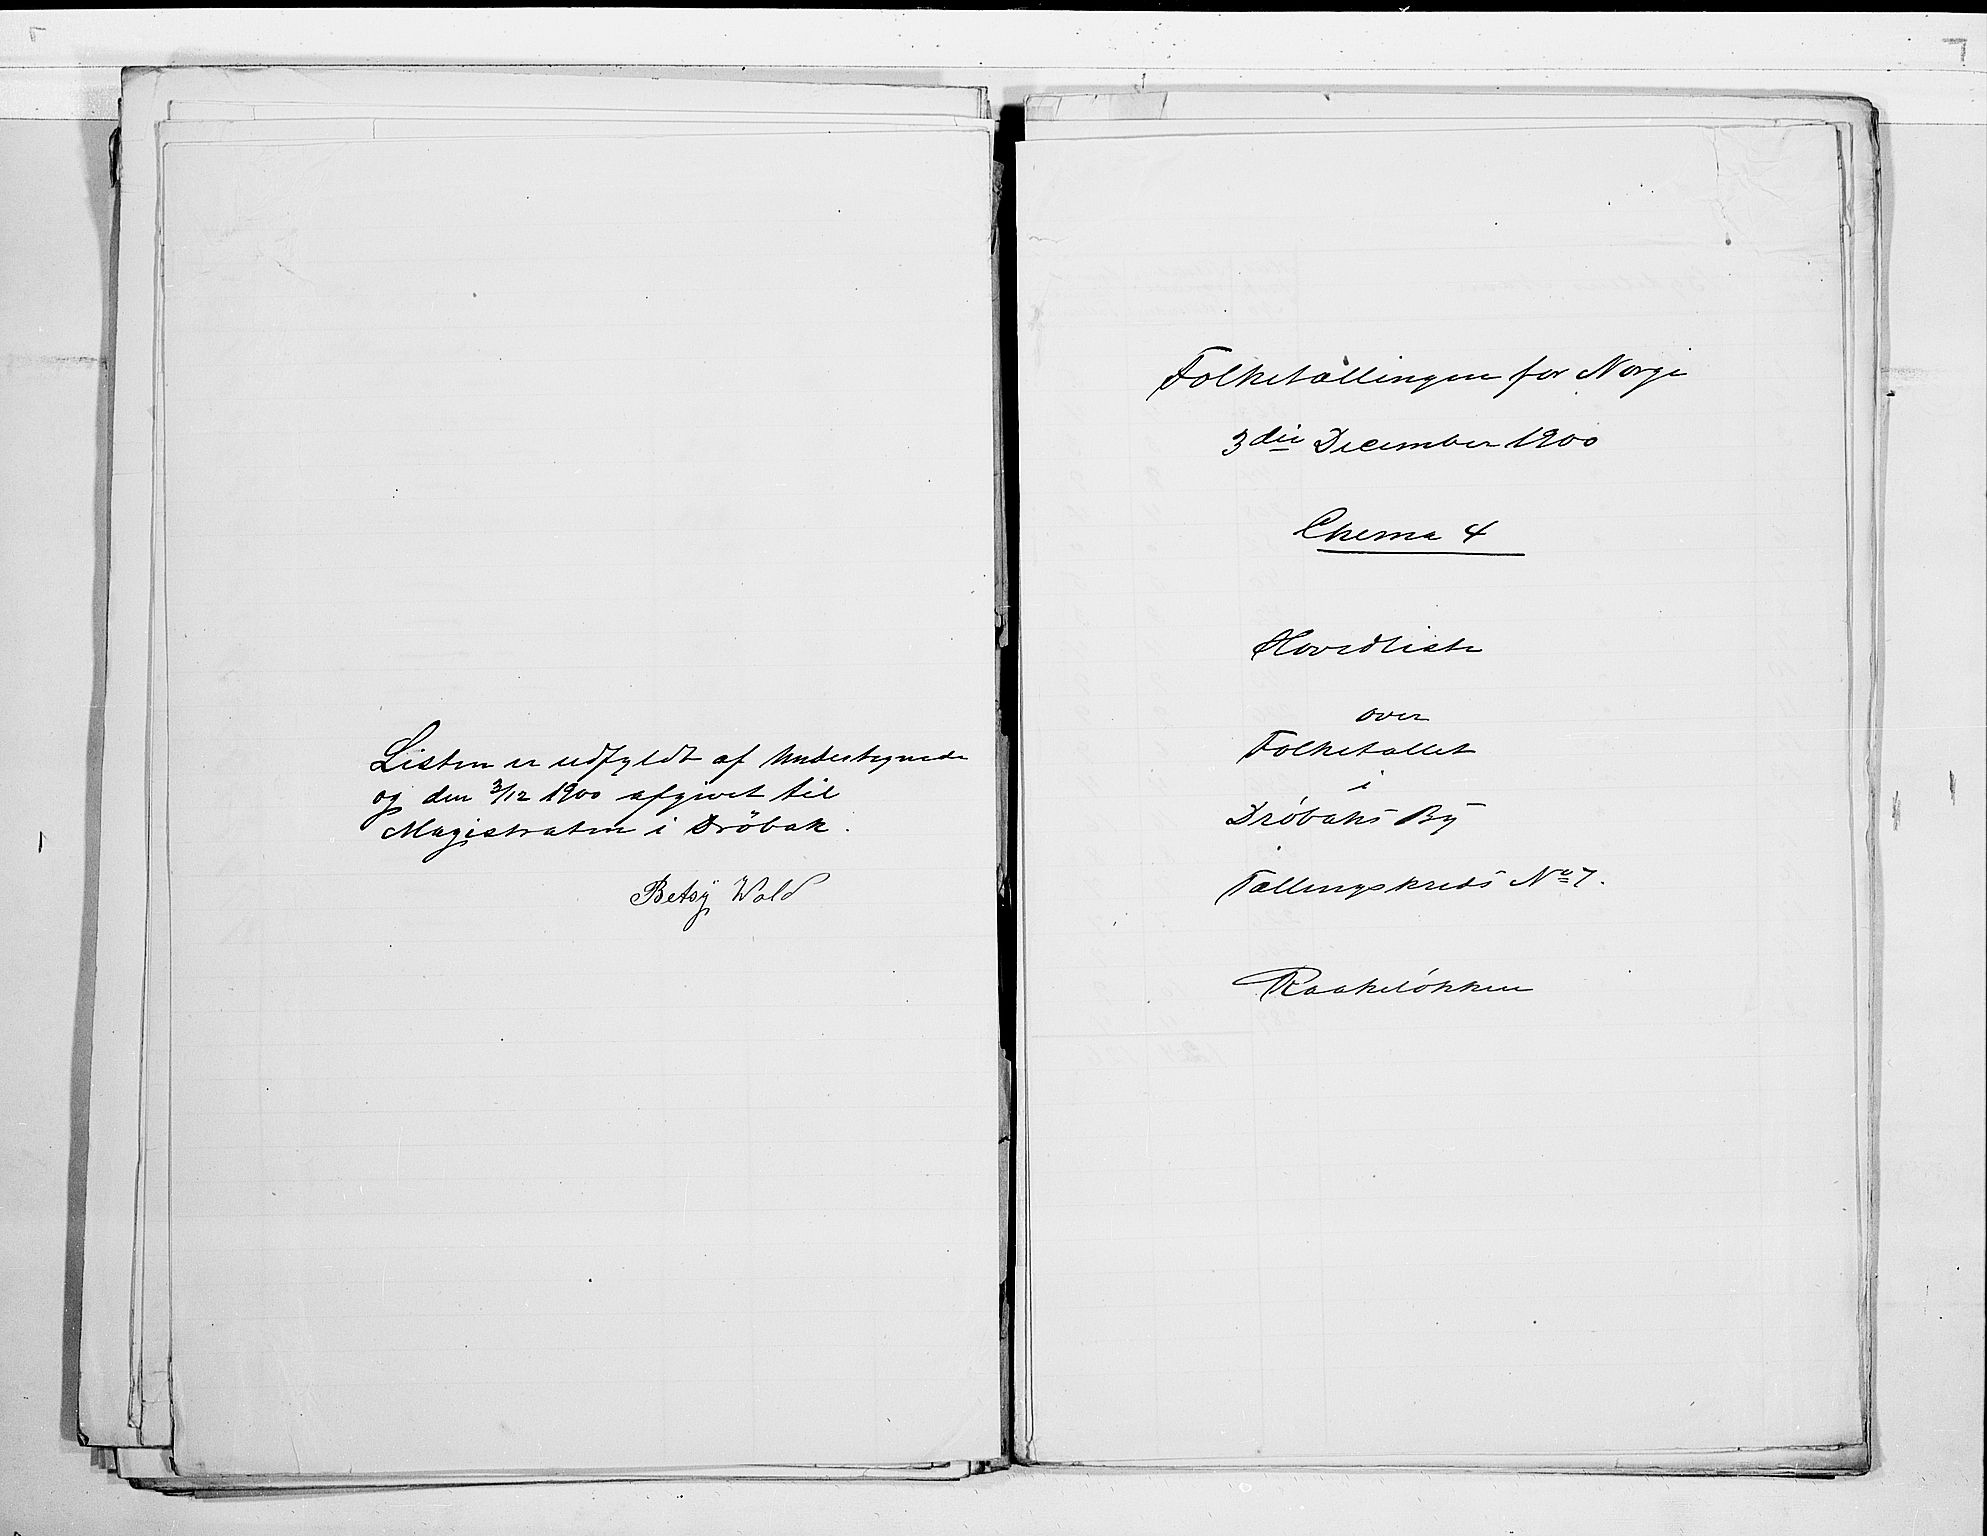 Listen er udfyldt af Undertegnede
og den 3/12 1900 afgivet til
Magistraten i Dröbak.
Betsy Wold
Folketællingen for Norge
3die December 1900
Chema 4
Hovedliste
over
Folketallet
i
Dröbaks By
Tællingskreds No 7.
Raakeløkken